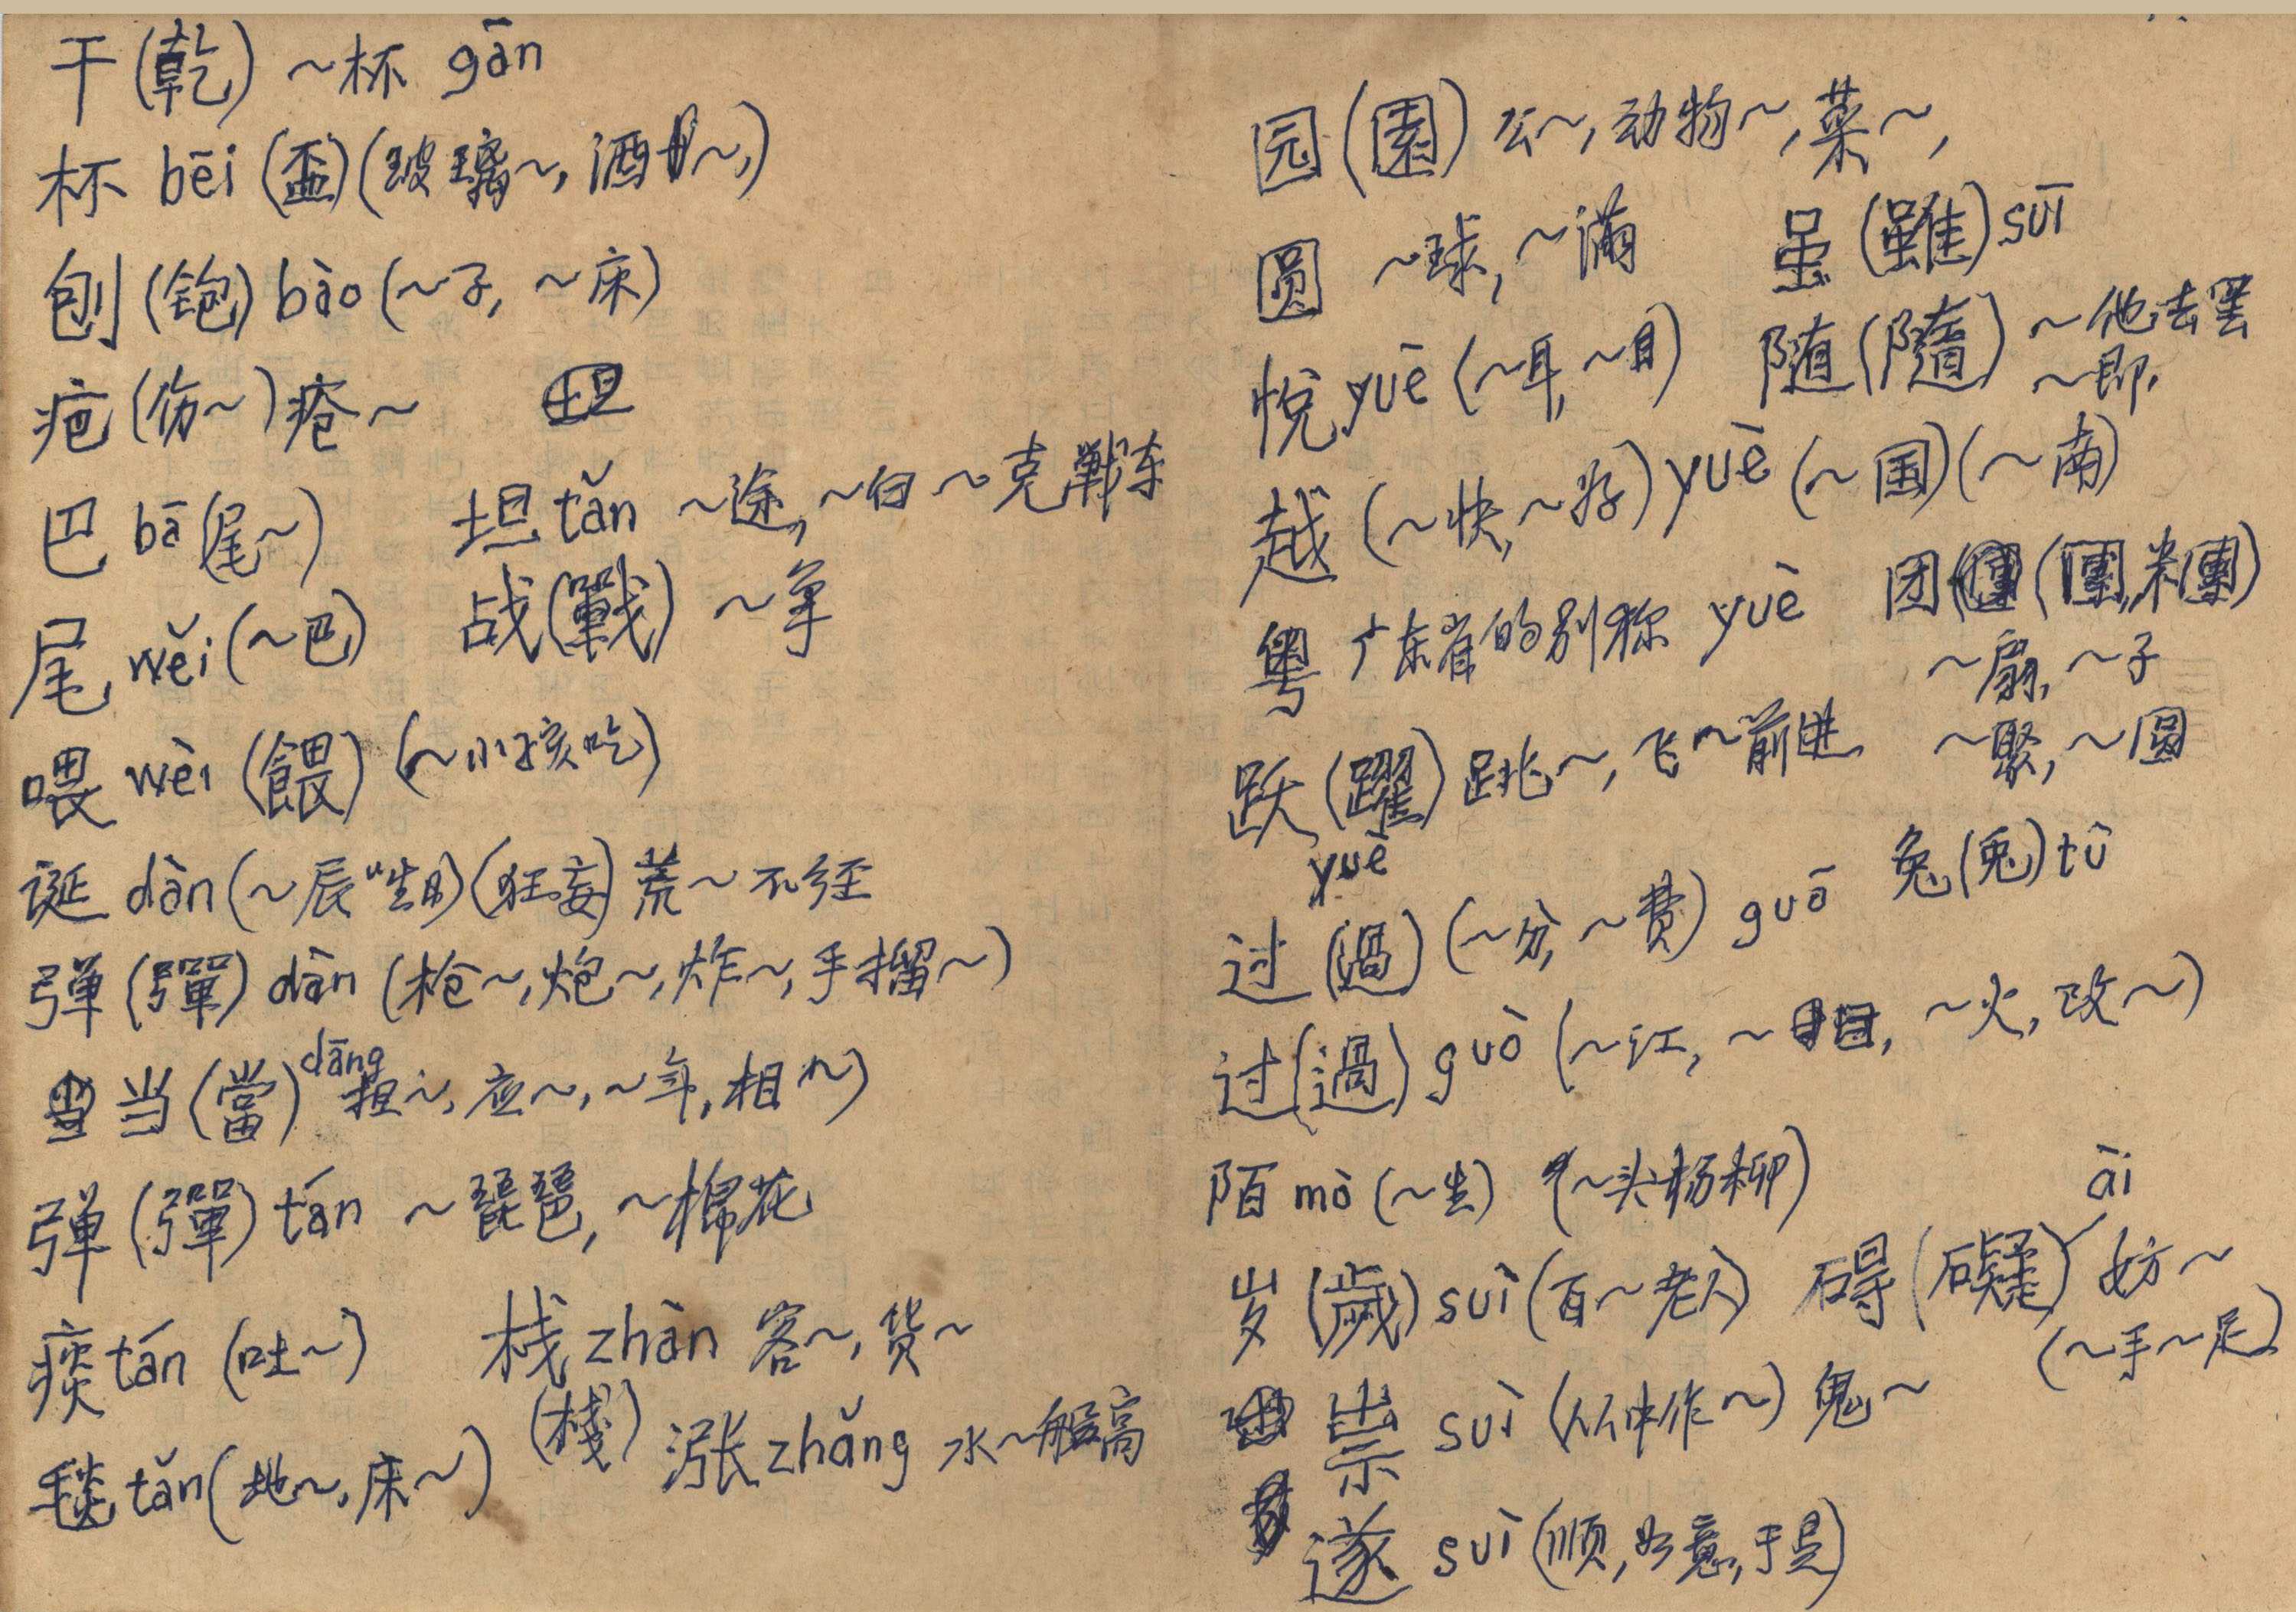 干(乾) ~杯 gān
杯 bēi (盃)(玻璃~, 酒~,)
刨(鉋) bào (~子, ~床)
疤(伤~) 疮~
巴 bā (尾~) 坦 tǎn ~途, ~白 ~克戰车
尾 wěi (~巴) 战(戰) ~争
喂 wèi (餵) (~小孩吃)
诞 dàn (~辰"生日)(狂妄) 荒~不经
弹(彈) dàn (枪~, 炮~, 炸~, 手榴~)
当(當) dāng 担~, 应~, ~年, 相~)
弹(彈) tán ~琵琶, ~棉花
痰 tán (吐~) 栈 zhàn 客~, 货~
(棧)
毯 tǎn (地~, 床~) 涨 zhǎng 水~船高
园(園) 公~, 动物~, 菜~,
圆 ~球, ~满 虽(雖) suī
悦 yuè (~耳, ~目) 随(隨) ~他去罢
~即,
越 (~快, ~好) yuè (~国)(~南)
粤 广东省的别称 yuè 团(團, 米團)
~扇, ~子
跃(躍) 跳~, 飞~前进 ~聚, ~圆
yuè
过(過) (~分, ~费) guō 兔(兎) tù
过(過) guò (~江, ~目, ~火, 改~)
陌 mò (~生) (~头杨柳)
岁(歲) suì (百~老人) 碍(礙) ài 妨~
(~手~足)
祟 suì (从中作~) 鬼~
遂 suì (顺, 如意, 于是)